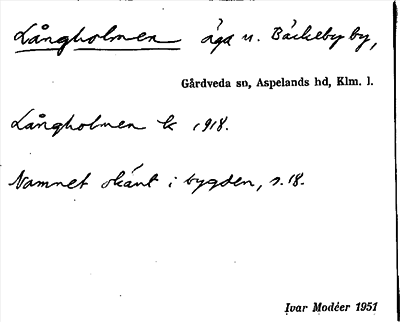 Långholmen äga u. Bäckeby by,
Gårdveda sn, Aspelands hd, Klm. l.
Långholmen k 1918.
Namnet okänt i bygden, s. 18.
Ivar Modéer 1951